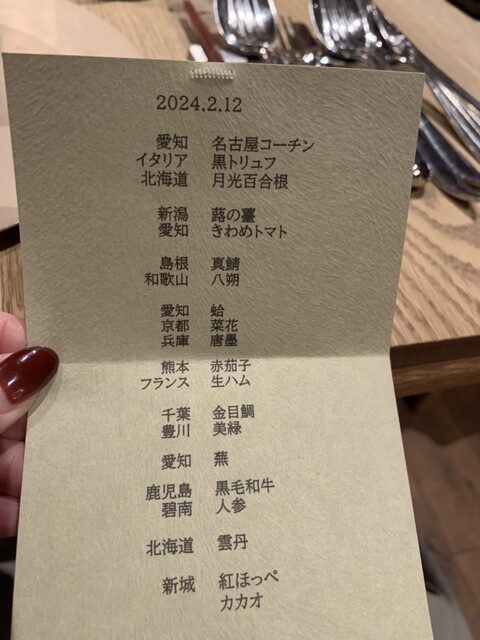 2024.2.12
愛知 名古屋コーチン
イタリア 黒トリュフ
北海道 月光百合根
新潟 蕗の薹
愛知 きわめトマト
島根 真鯖
和歌山 八朔
愛知 蛤
京都 菜花
兵庫 唐墨
熊本 赤茄子
フランス 生ハム
千葉 金目鯛
豊川 美緑
愛知 蕪
鹿児島 黒毛和牛
碧南 人参
北海道 雲丹
新城 紅ほっぺ
カカオ